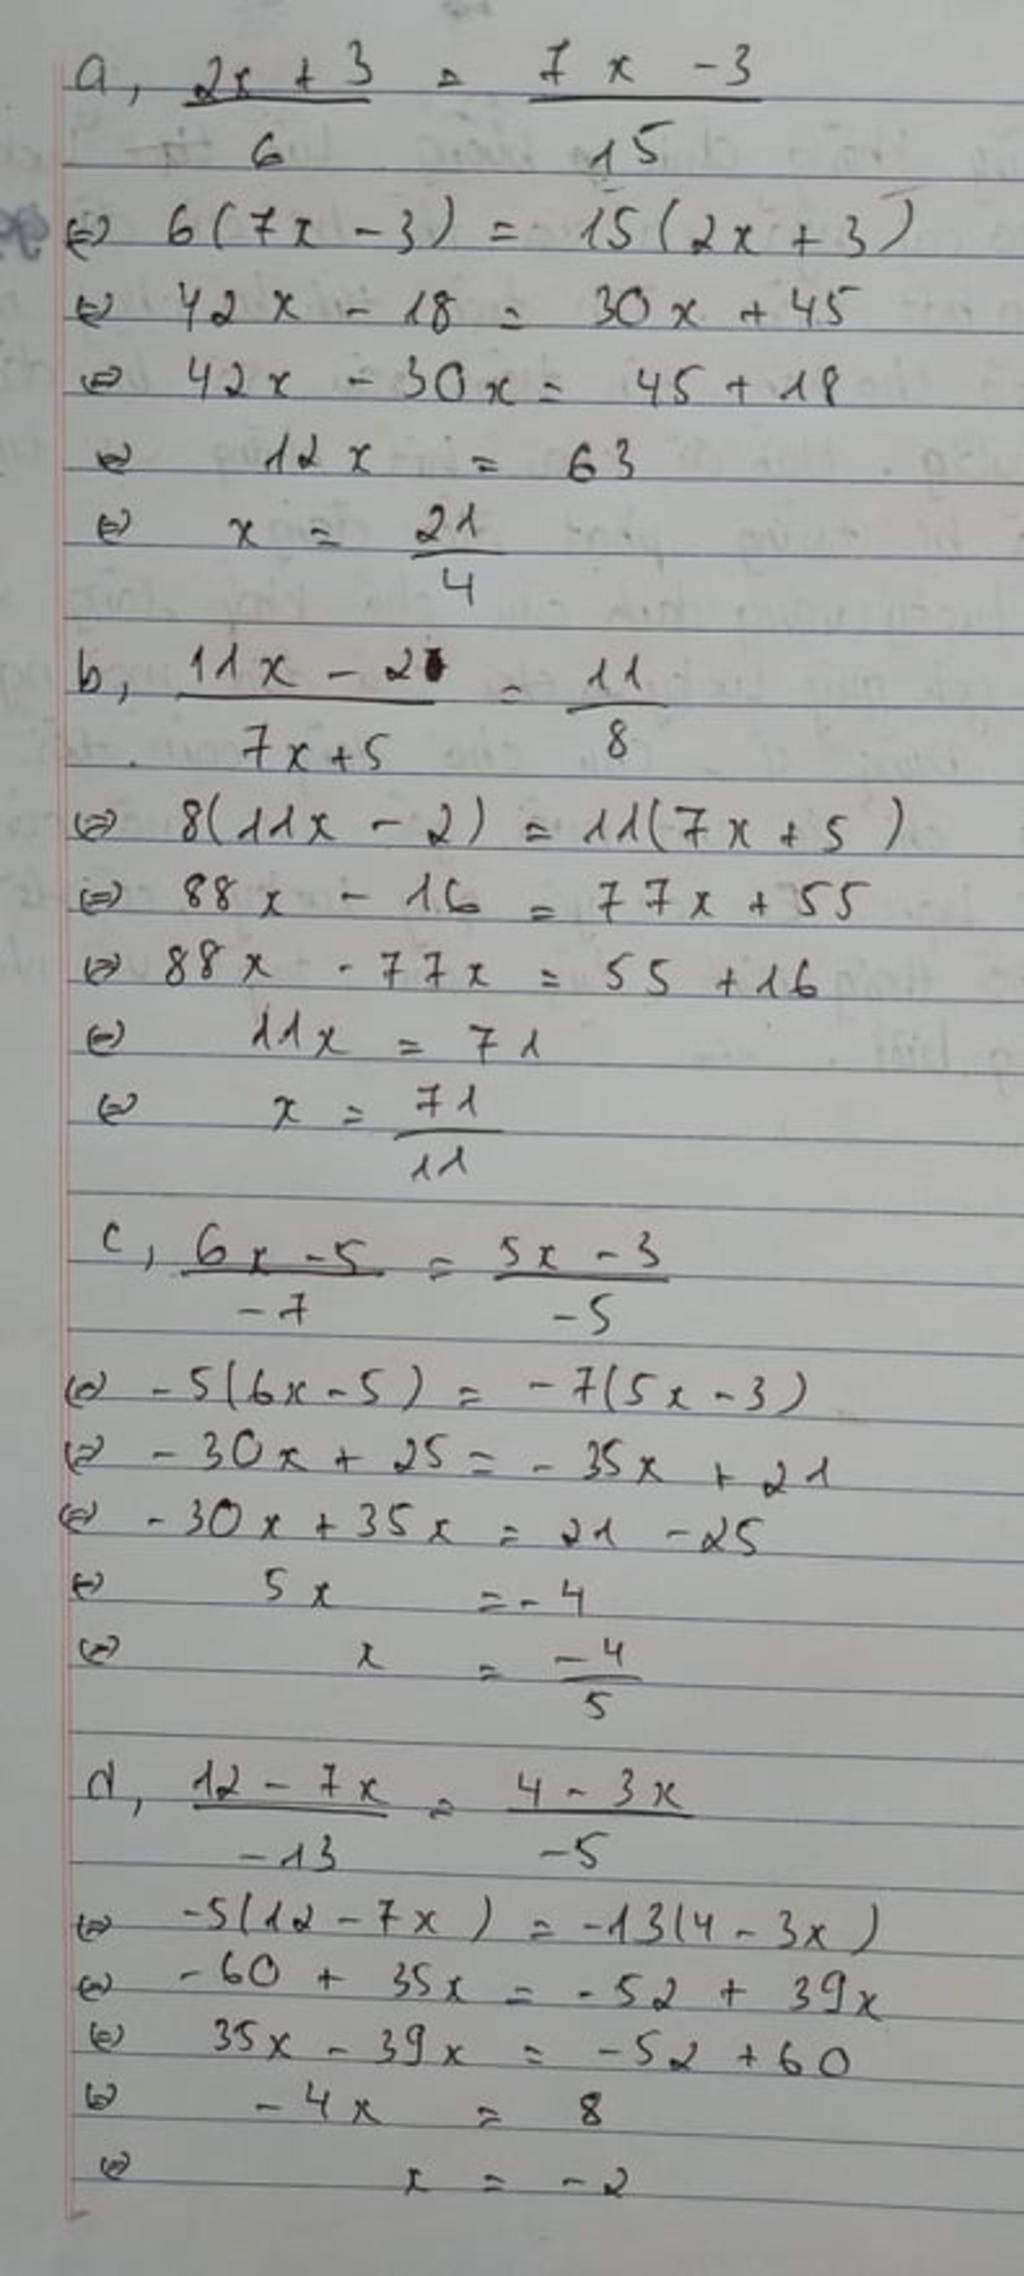 a, (2x + 3)/6 = (7x - 3)/15
⇔ 6(7x - 3) = 15(2x + 3)
⇔ 42x - 18 = 30x + 45
⇔ 42x - 30x = 45 + 18
⇔ 12x = 63
⇔ x = 21/4
b, (11x - 2)/(7x + 5) = 11/8
⇔ 8(11x - 2) = 11(7x + 5)
⇔ 88x - 16 = 77x + 55
⇔ 88x - 77x = 55 + 16
⇔ 11x = 71
⇔ x = 71/11
c, (6x - 5)/-7 = (5x - 3)/-5
⇔ -5(6x - 5) = -7(5x - 3)
⇔ -30x + 25 = -35x + 21
⇔ -30x + 35x = 21 - 25
⇔ 5x = -4
⇔ x = -4/5
d, (12 - 7x)/-13 = (4 - 3x)/-5
⇔ -5(12 - 7x) = -13(4 - 3x)
⇔ -60 + 35x = -52 + 39x
⇔ 35x - 39x = -52 + 60
⇔ -4x = 8
⇔ x = -2